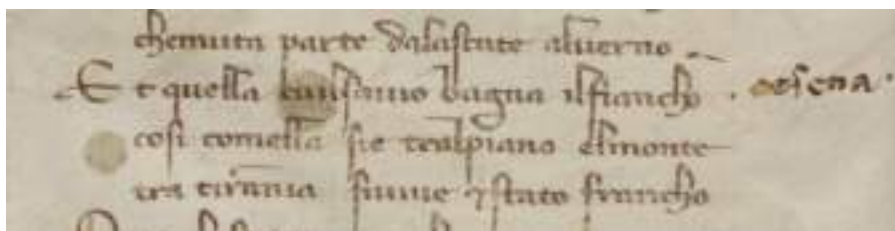 chemuta parte dalastate aluerno
E t quella cuilsauio bagna ilfiancho · cesena ·
cosi comella sie tralpiano elmonte
tra tirānia siuiue ⁊ stato francho